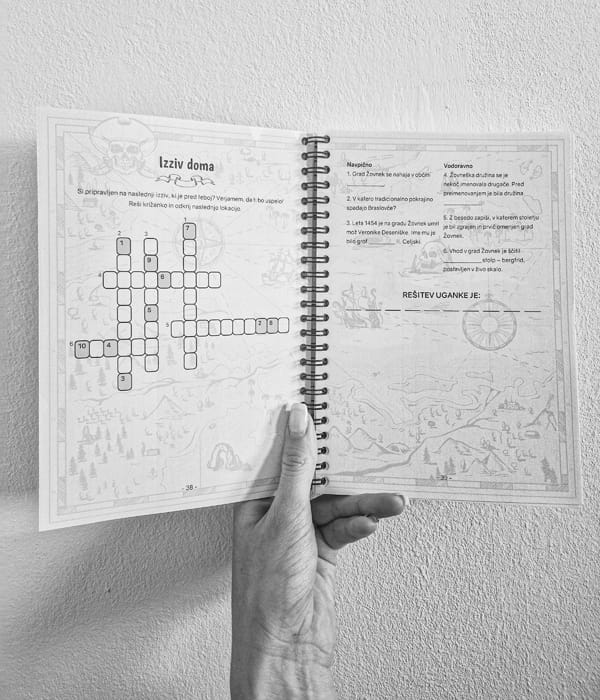 Izziv doma
Si pripravljen na naslednji izziv, ki je pred teboj? Verjamem, da ti bo uspelo!
Reši križanko in odkrij naslednjo lokacijo.
1
2 3 7
1
9
4 6
5
5 2 8
6 10 4
3
- 38 -
Navpično
1. Grad Žovnek se nahaja v občini
2. V katero tradicionalno pokrajino
spadajo Braslovče?
3. Leta 1454 je na gradu Žovnek umrl
mož Veronike Deseniške. Ime mu je
bilo grof ________ II. Celjski.
Vodoravno
4. Žovneška družina se je
nekoč imenovala drugače. Pred
preimenovanjem je bila družina ____
5. Z besedo zapiši, v katerem stoletju
je bil zgrajen in prvič omenjen grad
Žovnek.
6. Vhod v grad Žovnek je ščitil
____________ stolp – bergfrid,
postavljen v živo skalo.
REŠITEV UGANKE JE:
- 39 -